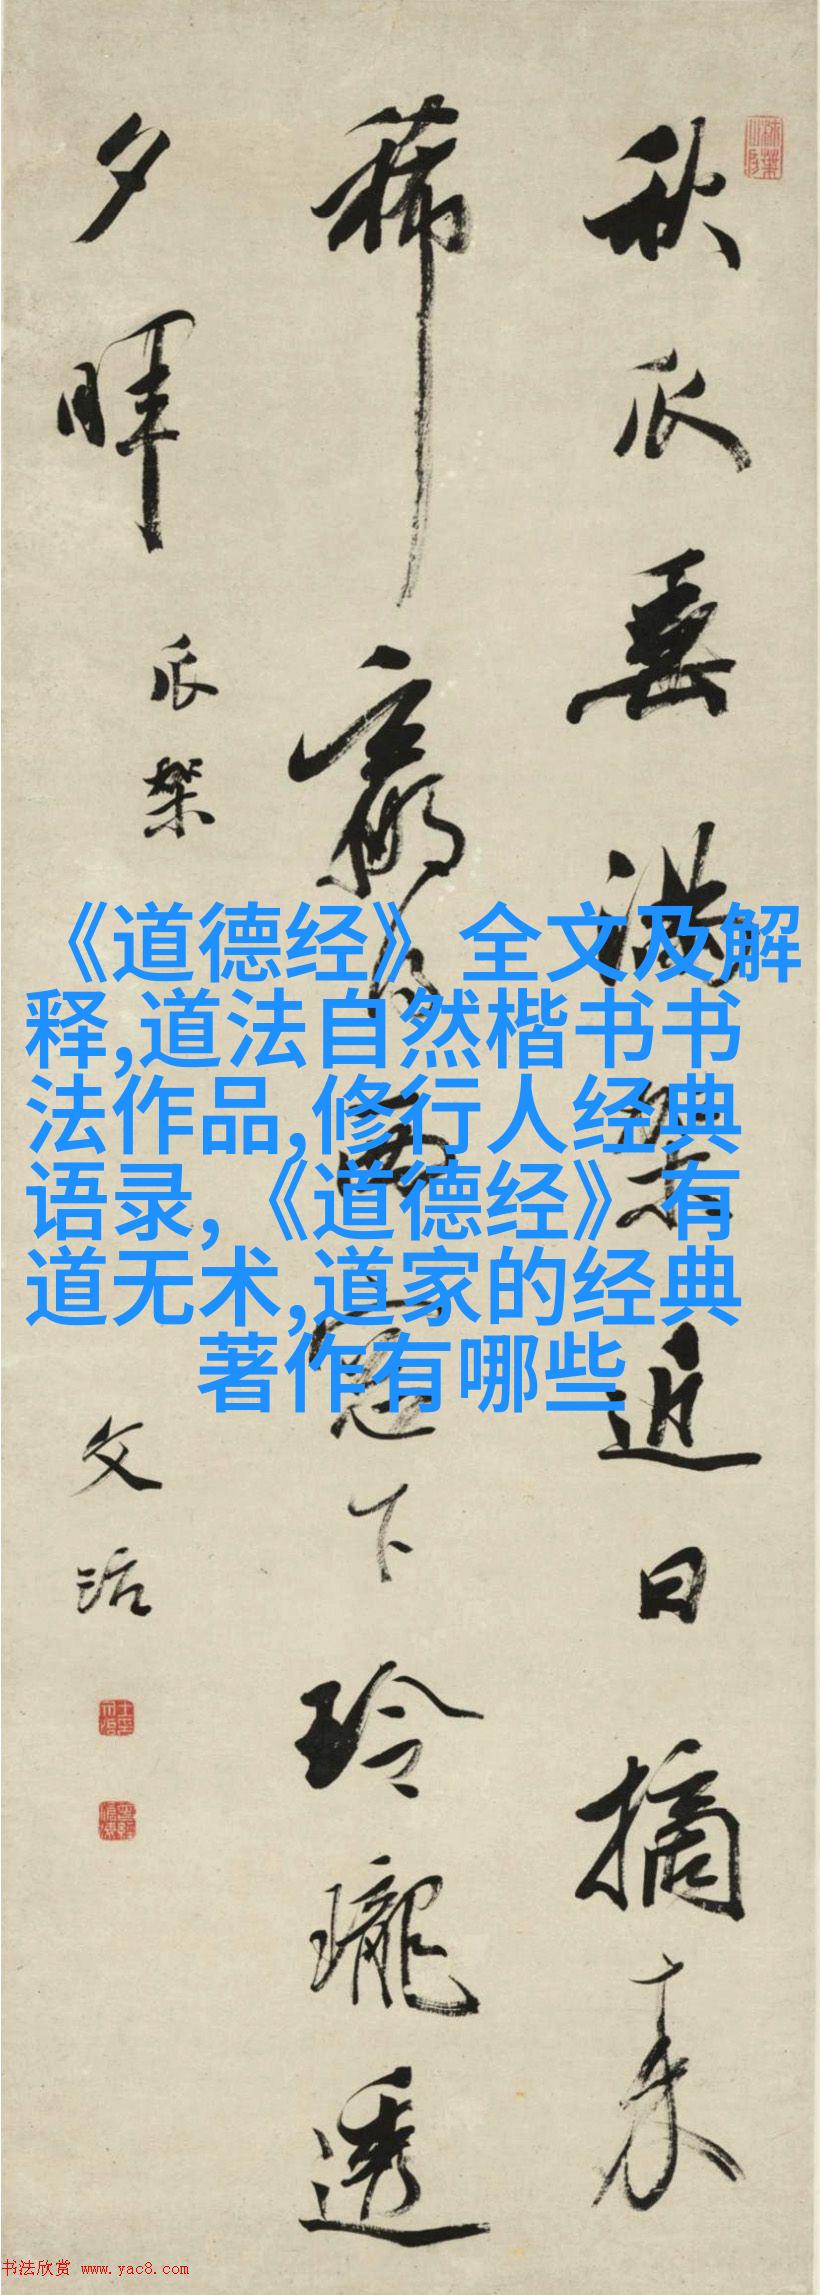 秋瓜垂滿架近日摘来
稀贏得西窓下玲瓏透
夕暉
瓜架
文治
《道德经》全文及解
释,道法自然楷书书
法作品,修行人经典
语录,《道德经》有
道无术,道家的经典
著作有哪些
书法欣赏 www.yac8.com